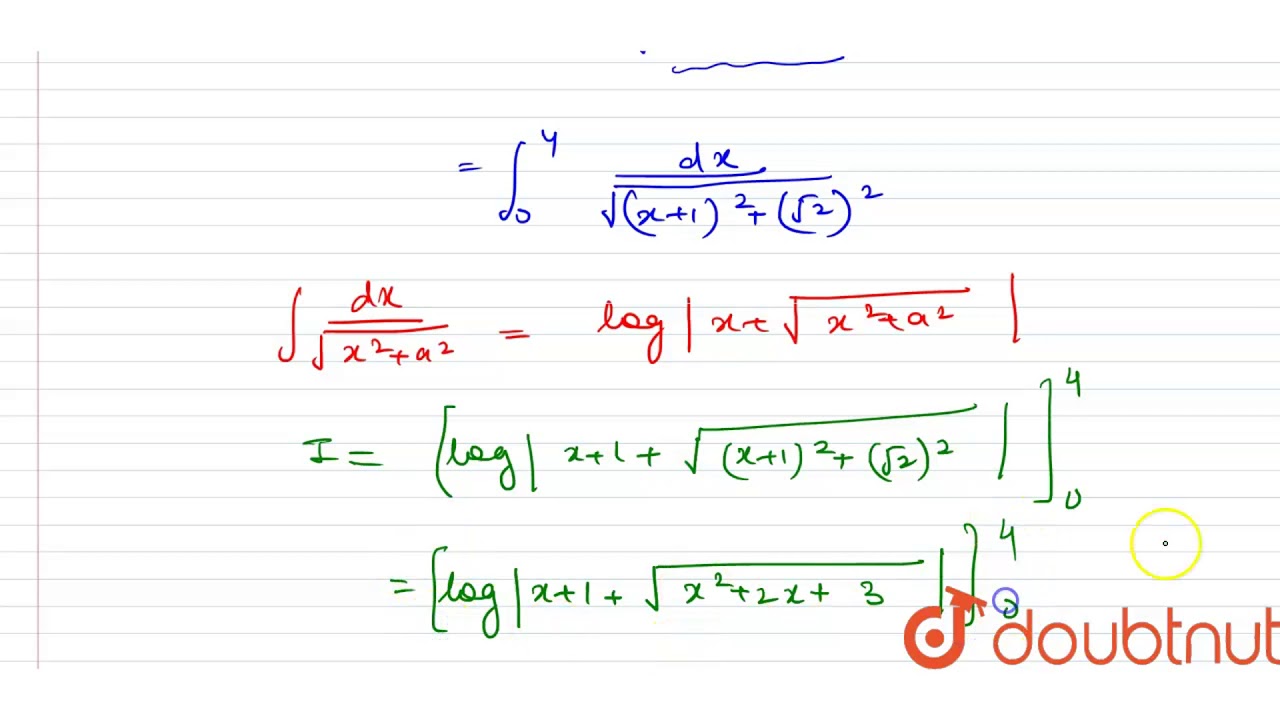 = ∫₀⁴ dx / √((x+1)² + (√2)²)
∫ dx / √(x²+a²) = log | x + √(x²+a²) |
I = [log | x+1 + √((x+1)² + (√2)²) |]₀⁴
= [log | x+1 + √(x²+2x+3) |]₀⁴
doubtnut